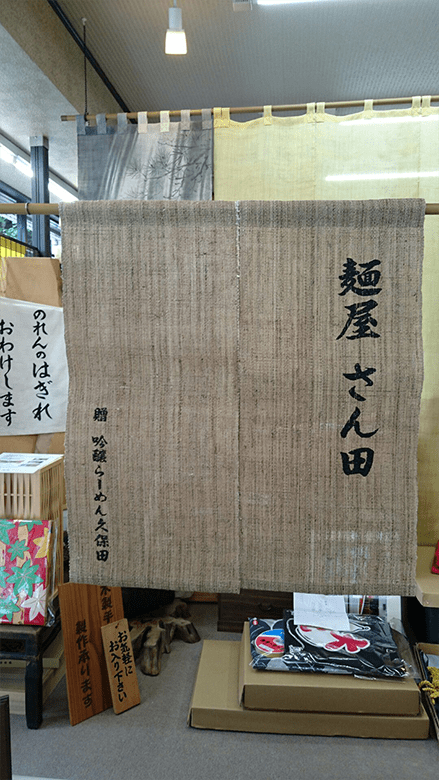 麺屋 さん田
贈 吟醸らーめん久保田
のれんのはぎれ
おわけします
製作承ります
お気軽に
お入り下さい